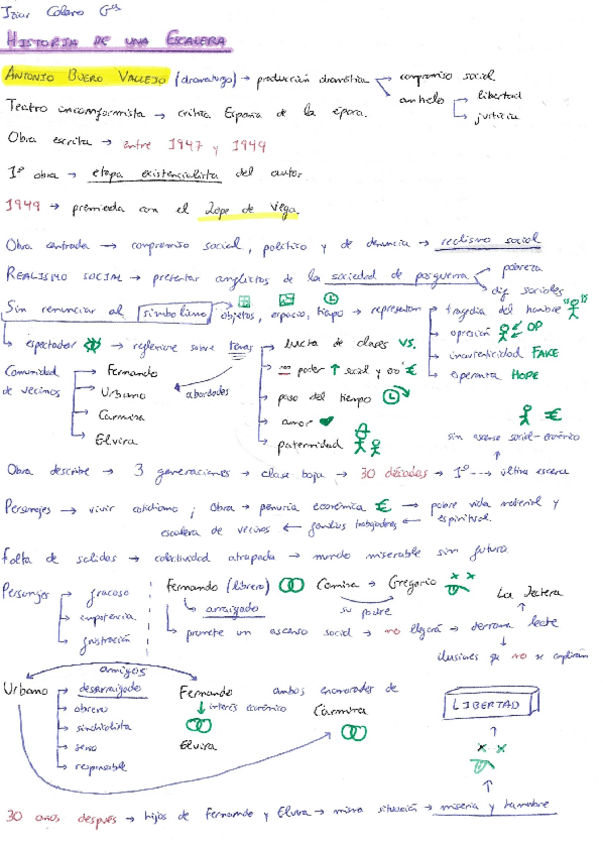 HISTORIA DE UNA ESCALERA
ANTONIO BUERO VALLEJO (dramaturgo) → producción dramática compromiso social
anhelo libertad
justicia
Teatro inconformista → critica España de la época.
Obra escrita → entre 1947 y 1949
1ª obra → etapa existencialista del autor
1949 → premiada con el Lope de Vega.
Obra centrada → compromiso social, político y de denuncia → realismo social
REALISMO SOCIAL → presentar conflictos de la sociedad de posguerra pobreza
dif sociales
Sin renunciar al simbolismo objetos, espacio, tiempo → representan tragedia del hombre
opresión OP
inautenticidad FAKE
esperanza HOPE
espectador → reflexione sobre temas abordados
lucha de clases VS.
poder ↑ social y €
paso del tiempo
amor
paternidad
Comunidad de vecinos
Fernando
Urbano
Carmina
Elvira
€
sin ascenso social-económico
Obra describe → 3 generaciones → clase baja → 30 décadas → 1º → última escena
Personajes → vivir cotidiano ; Obra → penuria económica € → pobre vida material y espiritual.
escalera de vecinos ← familias trabajadoras ←
Falta de salidas → colectividad atrapada → mundo miserable sin futuro.
Personajes
fracaso
impotencia
frustración
Fernando (librero) Carmina → Gregorio
su padre
arraigado
promete un ascenso social → no llegará → derrama leche
La Lechera
ilusiones que no se cumplirán
amigos
Urbano
desarraigado
obrero
sindicalista
serio
responsable
Fernando
↓ interés económico
Elvira
ambos enamorados de Carmina
LIBERTAD
30 años después → hijos de Fernando y Elvira → misma situación → miseria y